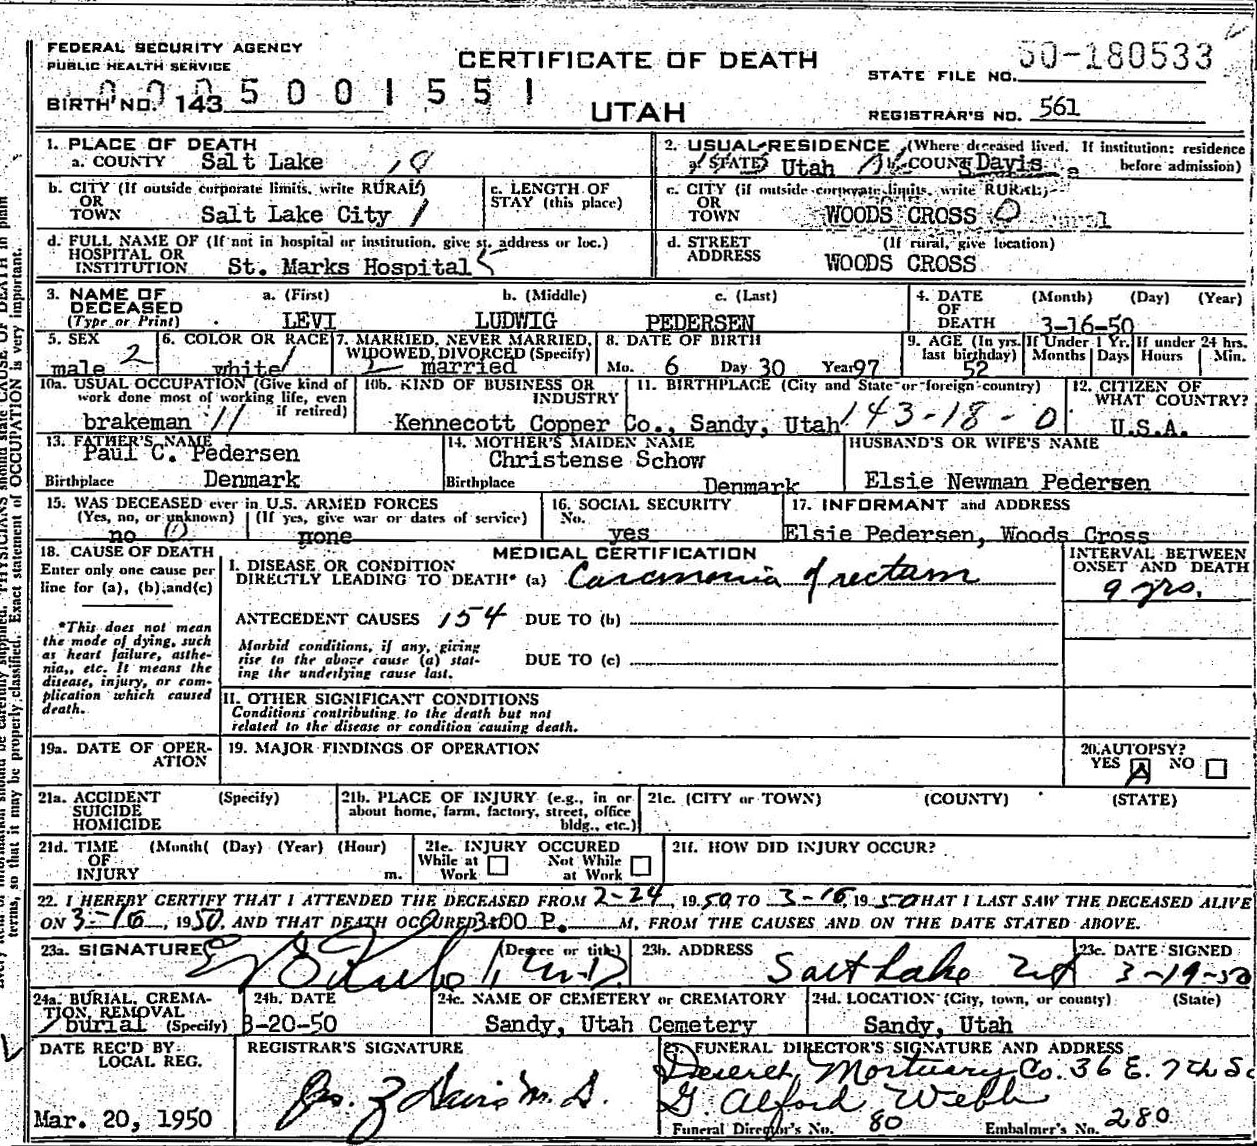 FEDERAL SECURITY AGENCY
PUBLIC HEALTH SERVICE
BIRTH NO. 143
0005001551
CERTIFICATE OF DEATH
UTAH
STATE FILE NO. 50-180533
REGISTRAR'S NO. 561
1. PLACE OF DEATH
a. COUNTY Salt Lake 18
2. USUAL RESIDENCE (Where deceased lived. If institution: residence before admission)
a. STATE Utah b. COUNTY Davis
b. CITY (If outside corporate limits, write RURAL)
OR
TOWN Salt Lake City 1
c. LENGTH OF
STAY (this place)
c. CITY (if outside corporate limits, write RURAL)
OR
TOWN WOODS CROSS 0
d. FULL NAME OF (If not in hospital or institution, give st. address or loc.)
HOSPITAL OR
INSTITUTION St. Marks Hospital
d. STREET (If rural, give location)
ADDRESS WOODS CROSS
3. NAME OF
DECEASED
(Type or Print)
a. (First) b. (Middle) c. (Last)
LEVI LUDWIG PEDERSEN
4. DATE (Month) (Day) (Year)
OF
DEATH 3-16-50
5. SEX
male 2
6. COLOR OR RACE
white 1
7. MARRIED, NEVER MARRIED,
WIDOWED, DIVORCED (Specify)
2 married
8. DATE OF BIRTH
Mo. 6 Day 30 Year 97
9. AGE (In yrs. last birthday)
52
If Under 1 Yr.
Months Days
If under 24 hrs.
Hours Min.
10a. USUAL OCCUPATION (Give kind of
work done most of working life, even
if retired)
brakeman 11
10b. KIND OF BUSINESS OR
INDUSTRY
Kennecott Copper Co.,
11. BIRTHPLACE (City and State or foreign country)
Sandy, Utah 143-18-0
12. CITIZEN OF
WHAT COUNTRY?
U.S.A.
13. FATHER'S NAME
Paul C. Pedersen
Birthplace Denmark
14. MOTHER'S MAIDEN NAME
Christense Schow
Birthplace Denmark
HUSBAND'S OR WIFE'S NAME
Elsie Newman Pedersen
15. WAS DECEASED ever in U.S. ARMED FORCES
(Yes, no, or unknown) (If yes, give war or dates of service)
no 0 none
16. SOCIAL SECURITY
No. yes
17. INFORMANT and ADDRESS
Elsie Pedersen, Woods Cross
18. CAUSE OF DEATH
Enter only one cause per
line for (a), (b), and (c)
*This does not mean
the mode of dying, such
as heart failure, asthe-
nia,, etc. It means the
disease, injury, or com-
plication which caused
death.
MEDICAL CERTIFICATION
I. DISEASE OR CONDITION
DIRECTLY LEADING TO DEATH* (a) Carcinonia of rectum
ANTECEDENT CAUSES 154 DUE TO (b)
Morbid conditions, if any, giving
rise to the above cause (a) stat-
ing the underlying cause last.
DUE TO (c)
II. OTHER SIGNIFICANT CONDITIONS
Conditions contributing to the death but not
related to the disease or condition causing death.
INTERVAL BETWEEN
ONSET AND DEATH
9 yrs.
19a. DATE OF OPER-
ATION
19. MAJOR FINDINGS OF OPERATION
20. AUTOPSY?
YES NO
21a. ACCIDENT (Specify)
SUICIDE
HOMICIDE
21b. PLACE OF INJURY (e.g., in or
about home, farm, factory, street, office
bldg., etc.)
21c. (CITY or TOWN) (COUNTY) (STATE)
21d. TIME (Month( (Day) (Year) (Hour)
OF
INJURY m.
21e. INJURY OCCURED
While at Work Not While at Work
21f. HOW DID INJURY OCCUR?
22. I HEREBY CERTIFY THAT I ATTENDED THE DECEASED FROM 2-24, 1950 TO 3-16, 1950 THAT I LAST SAW THE DECEASED ALIVE
ON 3-16, 1950, AND THAT DEATH OCCURED 3:00 P. M., FROM THE CAUSES AND ON THE DATE STATED ABOVE.
23a. SIGNATURE (Degree or title)
23b. ADDRESS
Salt Lake
23c. DATE SIGNED
3-19-50
24a. BURIAL, CREMA-
TION, REMOVAL
burial (Specify)
24b. DATE
3-20-50
24c. NAME OF CEMETERY or CREMATORY
Sandy, Utah Cemetery
24d. LOCATION (City, town, or county) (State)
Sandy, Utah
DATE REC'D BY
LOCAL REG.
Mar. 20, 1950
REGISTRAR'S SIGNATURE
Jos. Z Davis M.D.
FUNERAL DIRECTOR'S SIGNATURE AND ADDRESS
Deseret Mortuary Co. 36 E. 7th So
G. Alford Webb
Funeral Director's No. 80 Embalmer's No. 280
terms, so that it may be properly classified. Exact statement of OCCUPATION is very important.